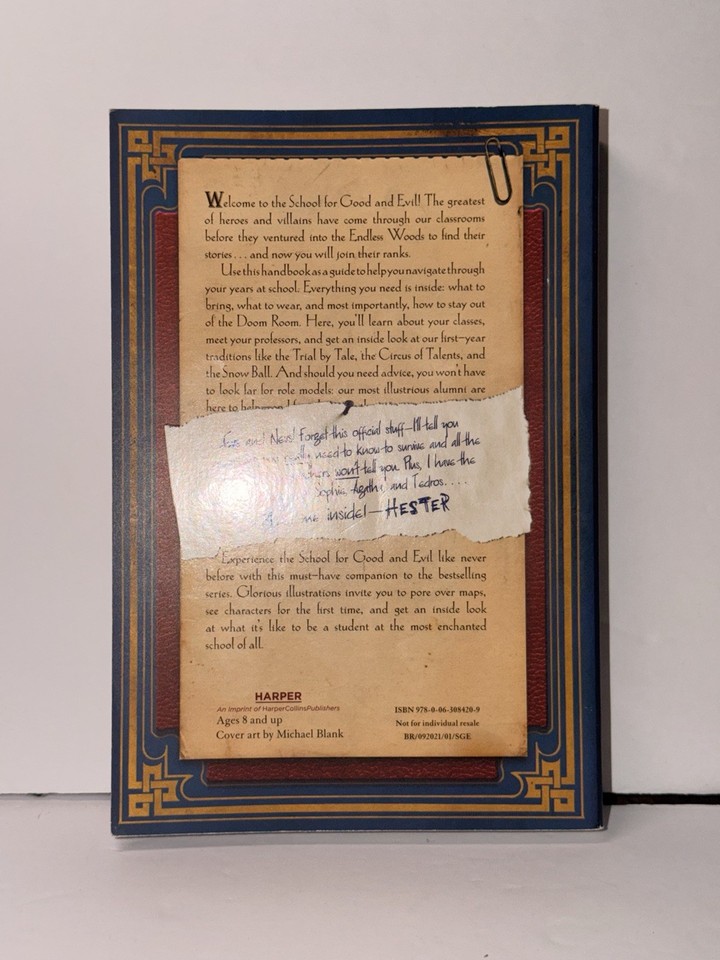 Welcome to the School for Good and Evil! The greatest
of heroes and villains have come through our classrooms
before they ventured into the Endless Woods to find their
stories . . . and now you will join their ranks.
Use this handbook as a guide to help you navigate through
your years at school. Everything you need is inside: what to
bring, what to wear, and most importantly, how to stay out
of the Doom Room. Here, you'll learn about your classes,
meet your professors, and get an inside look at our first-year
traditions like the Trial by Tale, the Circus of Talents, and
the Snow Ball. And should you need advice, you won't have
to look far for role models: our most illustrious alumni are
here to help
and Nevers! Forget this official stuff—I'll tell you
really need to know to survive and all the
won't tell you. Plus, I have the
Sophie, Agatha, and Tedros. . . .
me inside!—HESTER
Experience the School for Good and Evil like never
before with this must-have companion to the bestselling
series. Glorious illustrations invite you to pore over maps,
see characters for the first time, and get an inside look
at what it's like to be a student at the most enchanted
school of all.
HARPER
An Imprint of HarperCollinsPublishers
Ages 8 and up
Cover art by Michael Blank
ISBN 978-0-06-308420-9
Not for individual resale
BR/092021/01/SGE